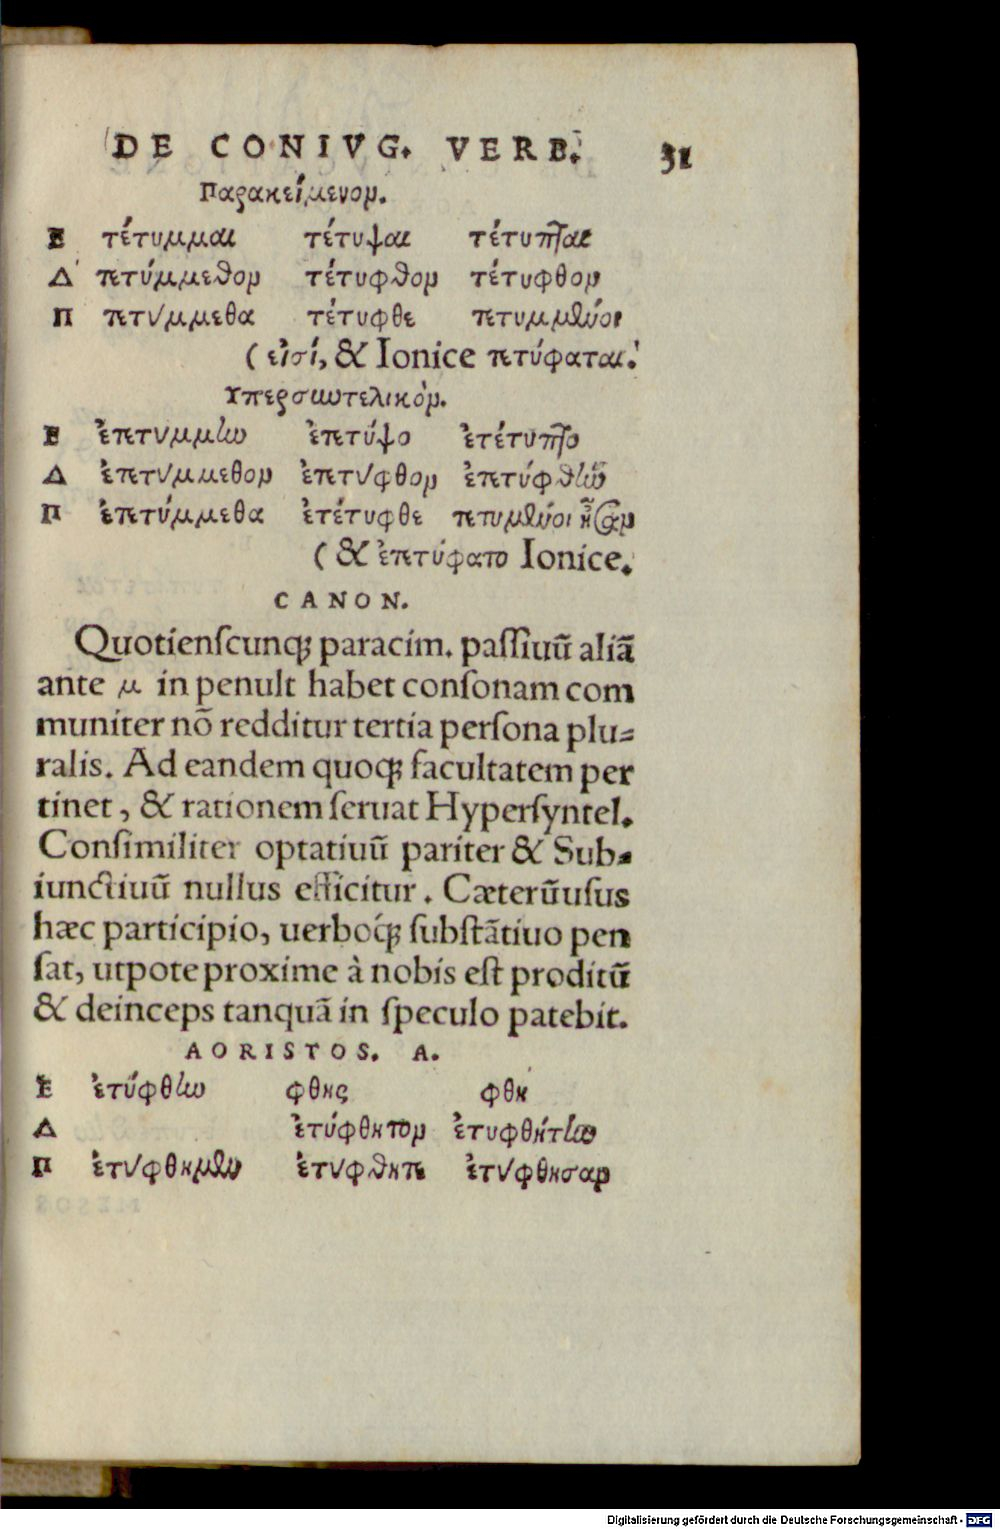 DE CONIVG. VERB. 31
Παρακείμενον.
Ε τέτυμμαι τέτυψαι τέτυπται
Δ τετύμμεθον τέτυφθον τέτυφθον
Π τετύμμεθα τέτυφθε τετυμμένοι
(εἰσί, & Ionice τετύφαται.
Υπερσυντελικὸν.
Ε ἐτετύμμην ἐτέτυψο ἐτέτυπτο
Δ ἐτετύμμεθον ἐτέτυφθον ἐτετύφθην
Π ἐτετύμμεθα ἐτέτυφθε τετυμένοι ἦσαν
(& ἐτετύφατο Ionice.
CANON.
Quotienſcunq; paracim. paſſiuũ aliã
ante μ in penult habet conſonam com
muniter nõ redditur tertia perſona plu=
ralis. Ad eandem quoq; facultatem per
tinet, & rationem ſeruat Hyperſyntel.
Conſimiliter optatiuũ pariter & Sub=
iunctiuũ nullus efficitur. Cæterũ uſus
hæc participio, uerboq́; ſubſtãtiuo pen
ſat, utpote proxime à nobis eſt proditũ
& deinceps tanquã in ſpeculo patebit.
AORISTOS. A.
Ε ἐτύφθην φθης φθη
Δ ἐτύφθητον ἐτυφθήτην
Π ἐτύφθημεν ἐτύφθητε ἐτύφθησαν
Digitalisierung gefördert durch die Deutsche Forschungsgemeinschaft - DFG